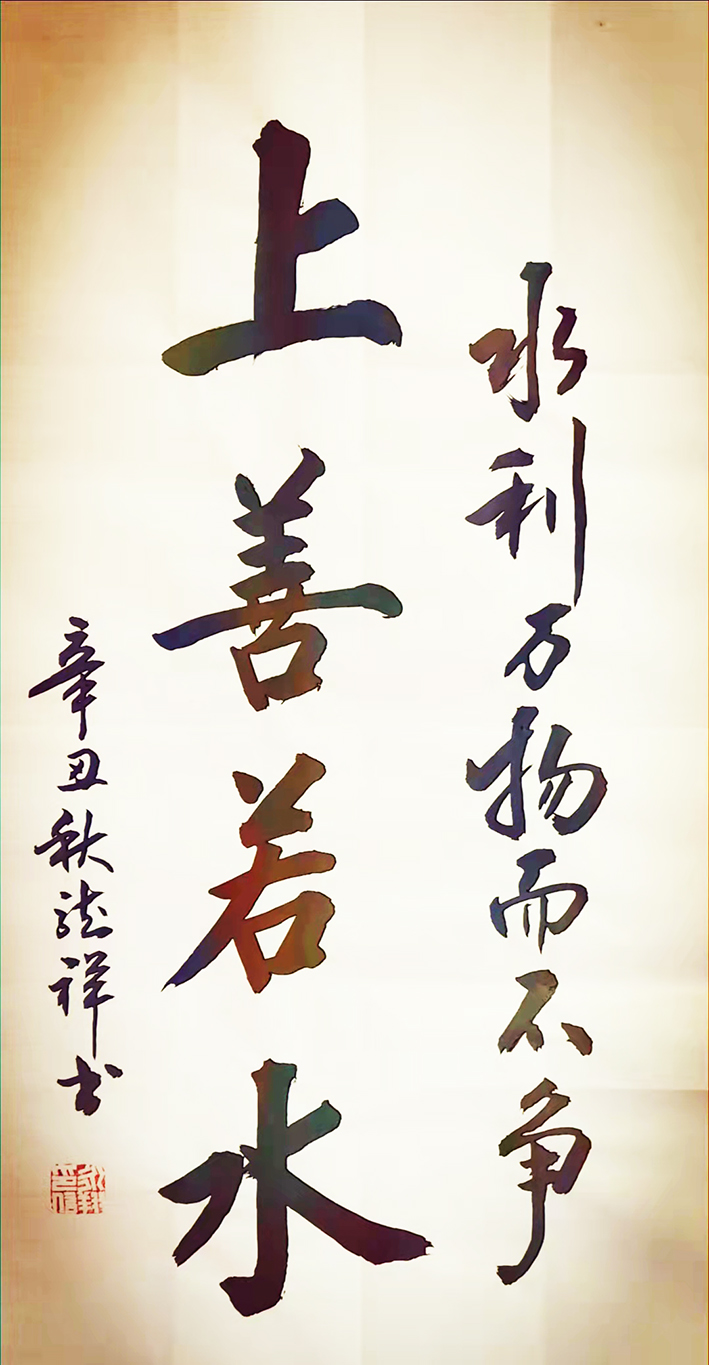 水利万物而不争
上善若水
辛丑秋祥书